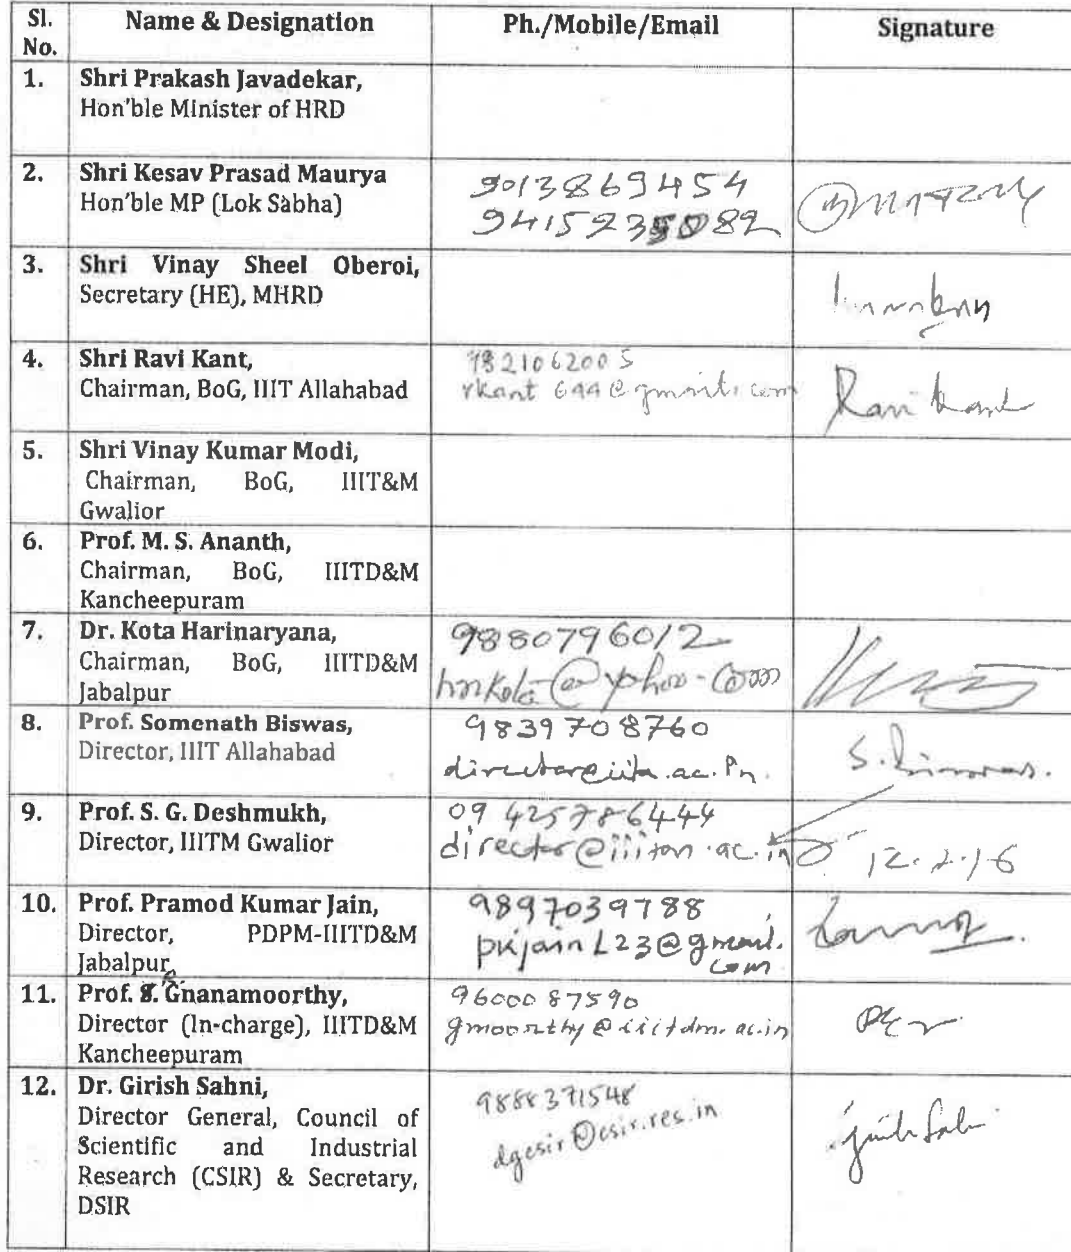 Sl. No. Name & Designation Ph./Mobile/Email Signature
1. Shri Prakash Javadekar,
Hon'ble Minister of HRD
2. Shri Kesav Prasad Maurya
Hon'ble MP (Lok Sabha)
9013869454
3. Shri Vinay Sheel Oberoi,
Secretary (HE), MHRD
4. Shri Ravi Kant,
Chairman, BoG, IIIT Allahabad
9821062005
rkant 644@gmail.com
Ravi Kant
5. Shri Vinay Kumar Modi,
Chairman, BoG, IIIT&M
Gwalior
6. Prof. M. S. Ananth,
Chairman, BoG, IIITD&M
Kancheepuram
7. Dr. Kota Harinaryana,
Chairman, BoG, IIITD&M
Jabalpur
9880796012
8. Prof. Somenath Biswas,
Director, IIIT Allahabad
9839708760
director@iiita.ac.in
S. Biswas.
9. Prof. S. G. Deshmukh,
Director, IIITM Gwalior
09425786444
director@iiitm.ac.in
12.2.16
10. Prof. Pramod Kumar Jain,
Director, PDPM-IIITD&M
Jabalpur
9897039788
pkjain123@gmail.
com
11. Prof. Gnanamoorthy,
Director (In-charge), IIITD&M
Kancheepuram
9600087590
gmoorthy@iiitdm.ac.in
12. Dr. Girish Sahni,
Director General, Council of
Scientific and Industrial
Research (CSIR) & Secretary,
DSIR
9888371548
dgcsir@csir.res.in